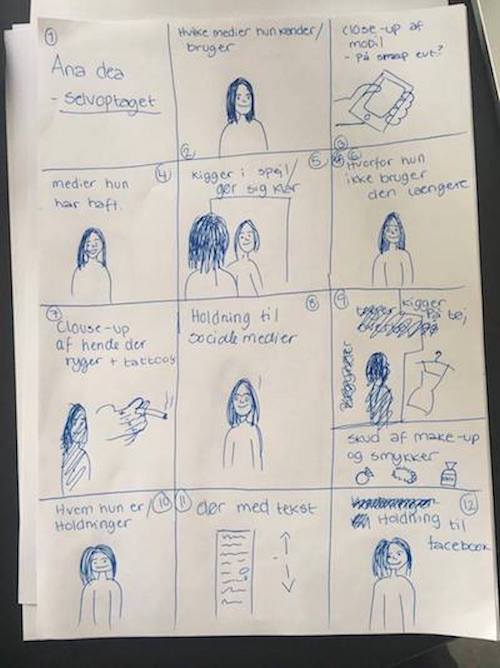 1
Ana dea
- Selvoptaget
Hvilke medier hun kender/
bruger
2
Close-up af
mobil
- på snap evt?
3
4
medier hun
har haft.
5
Kigger i spejl/
gør sig klar
6
Hvorfor hun
ikke bruger
den længere
7
Clouse-up
af hende der
ryger + tattoos
8
Holdning til
sociale medier
9
kigger
på tøj
skud af make-up
og smykker
10
Hvem hun er/
Holdninger
11
dør med tekst
12
Holdning til
facebook